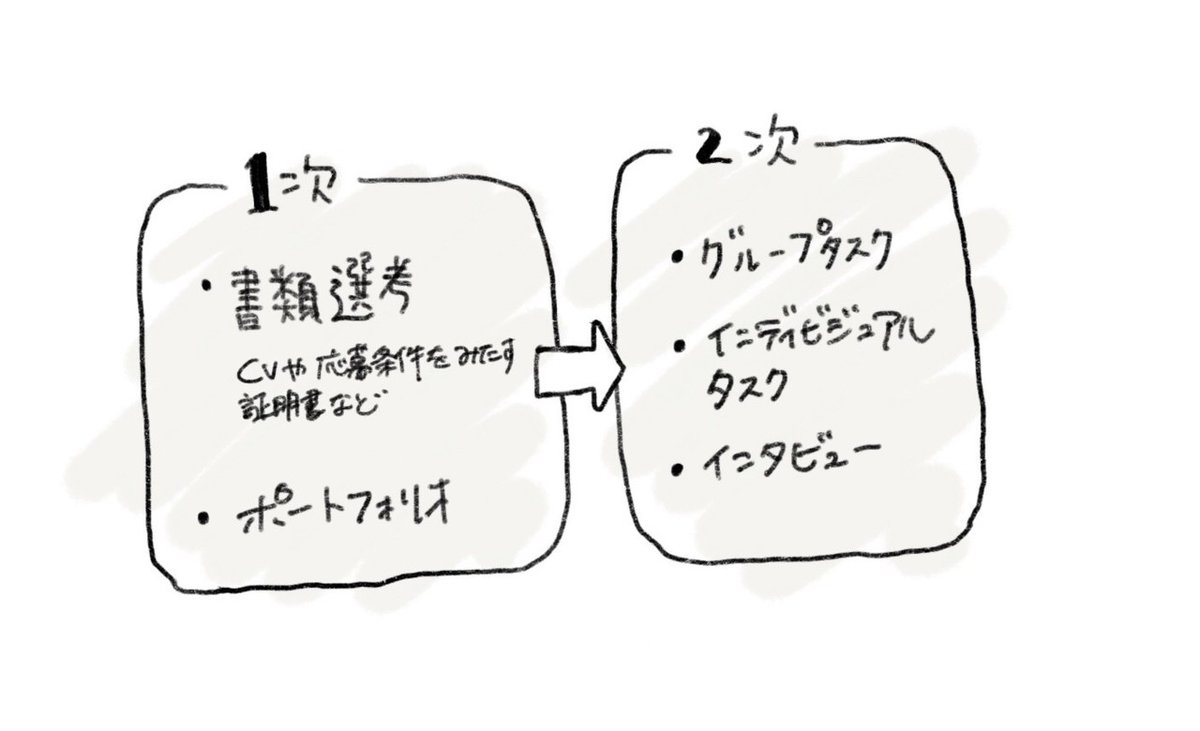 1次
・書類選考
CVや応募条件をみたす
証明書など
・ポートフォリオ
2次
・グループタスク
・インディビジュアル
タスク
・インタビュー